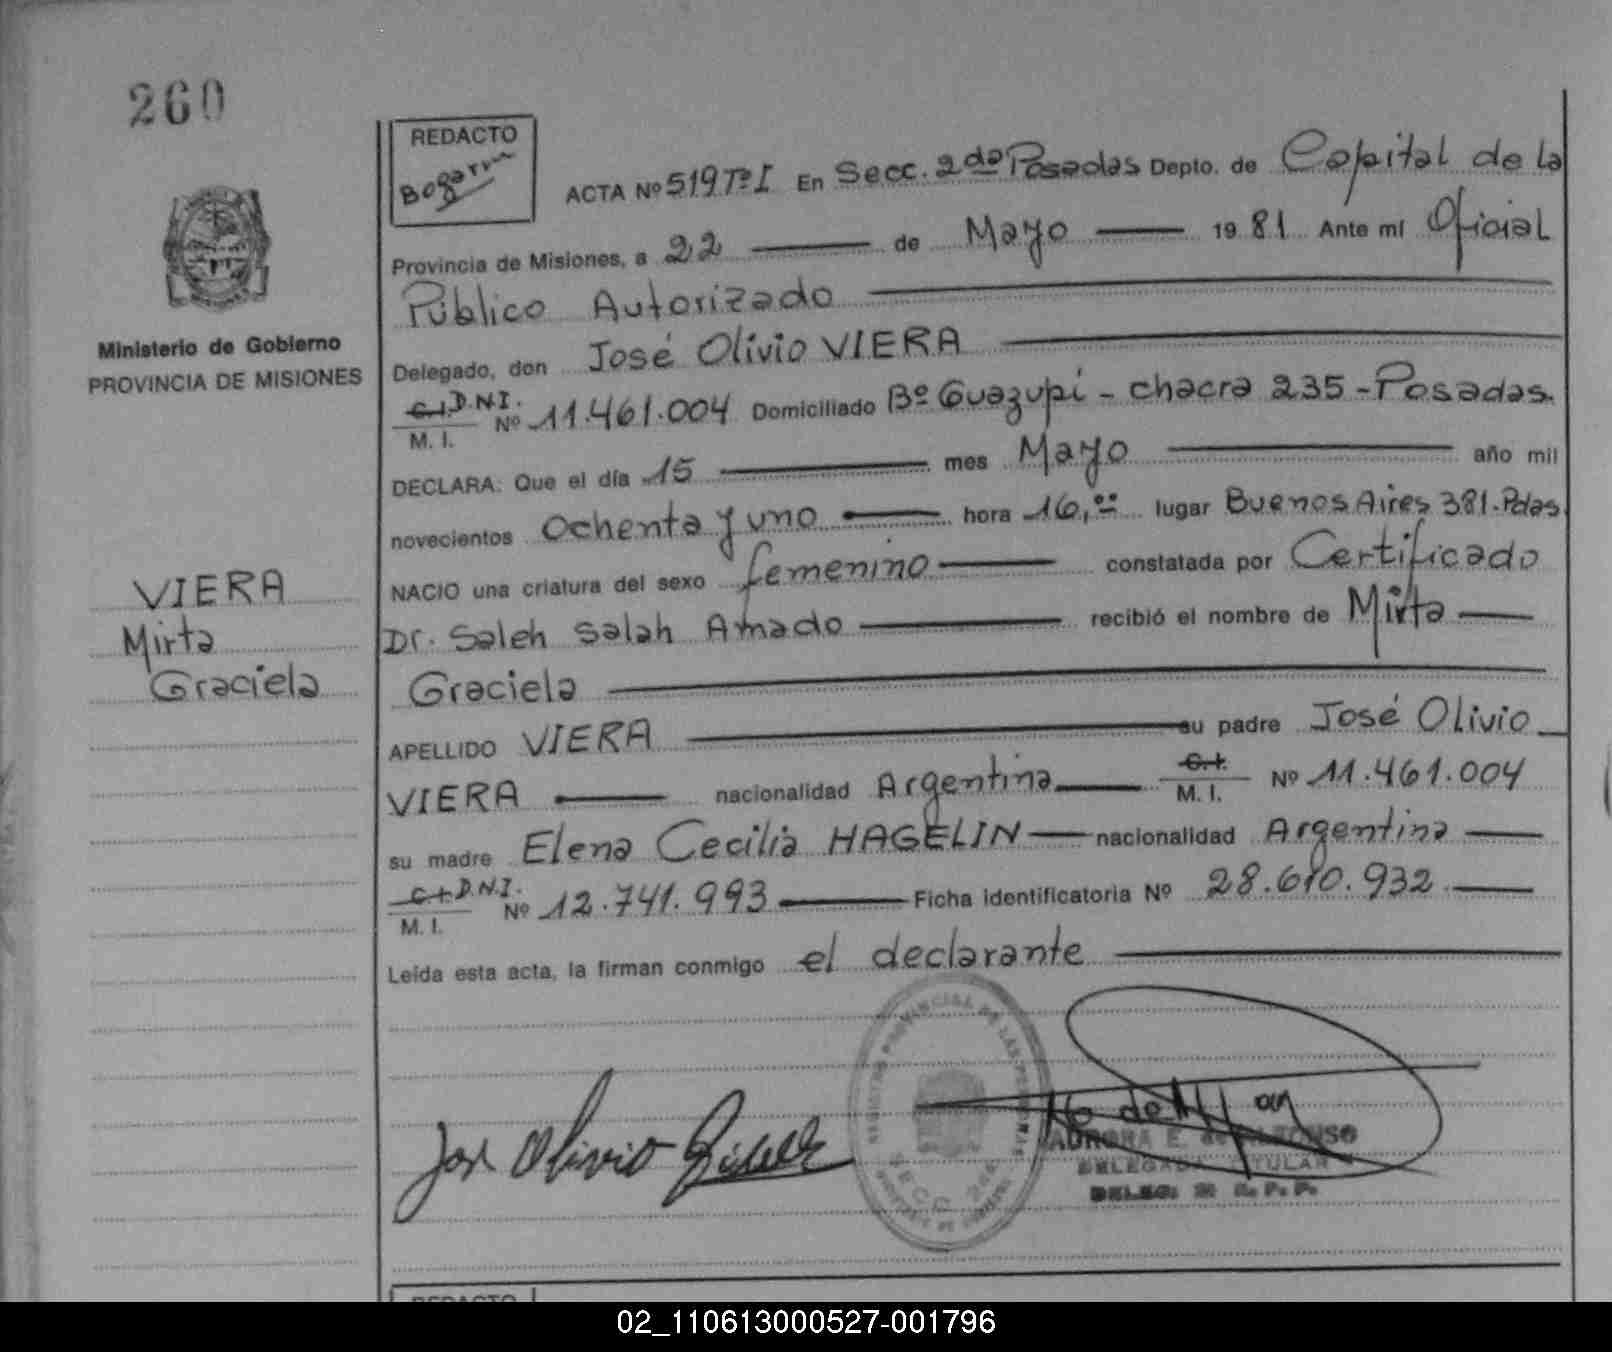 260
REDACTO
Bogarin
ACTA Nº 519 Tº I En Secc. 2da Posadas Depto. de Capital de la
Provincia de Misiones, a 22 de Mayo 1981 Ante mí Oficial
Público Autorizado
Ministerio de Gobierno
PROVINCIA DE MISIONES
Delegado, don José Olivio VIERA
C.I. D.N.I. M. I. Nº 11.461.004 Domiciliado Bº Guazupí - chacra 235 - Posadas.
DECLARA: Que el día 15 mes Mayo año mil
novecientos Ochenta y uno hora 16,00 lugar Buenos Aires 381. Pdas.
NACIO una criatura del sexo femenino constatada por Certificado
Dr. Saleh Salah Amado recibió el nombre de Mirta
Graciela
VIERA
Mirta
Graciela
APELLIDO VIERA su padre José Olivio
VIERA nacionalidad Argentina C.I. M. I. Nº 11.461.004
su madre Elena Cecilia HAGELIN nacionalidad Argentina
C.I. D.N.I. M. I. Nº 12.741.993 Ficha identificatoria Nº 28.610.932
Leída esta acta, la firman conmigo el declarante
REGISTRO PROVINCIAL DE LAS PERSONAS
SECC 2da
José Olivio
AURORA E. de
DELEGADA TITULAR
DELEG. R. P. P.
REDACTO
02_110613000527-001796